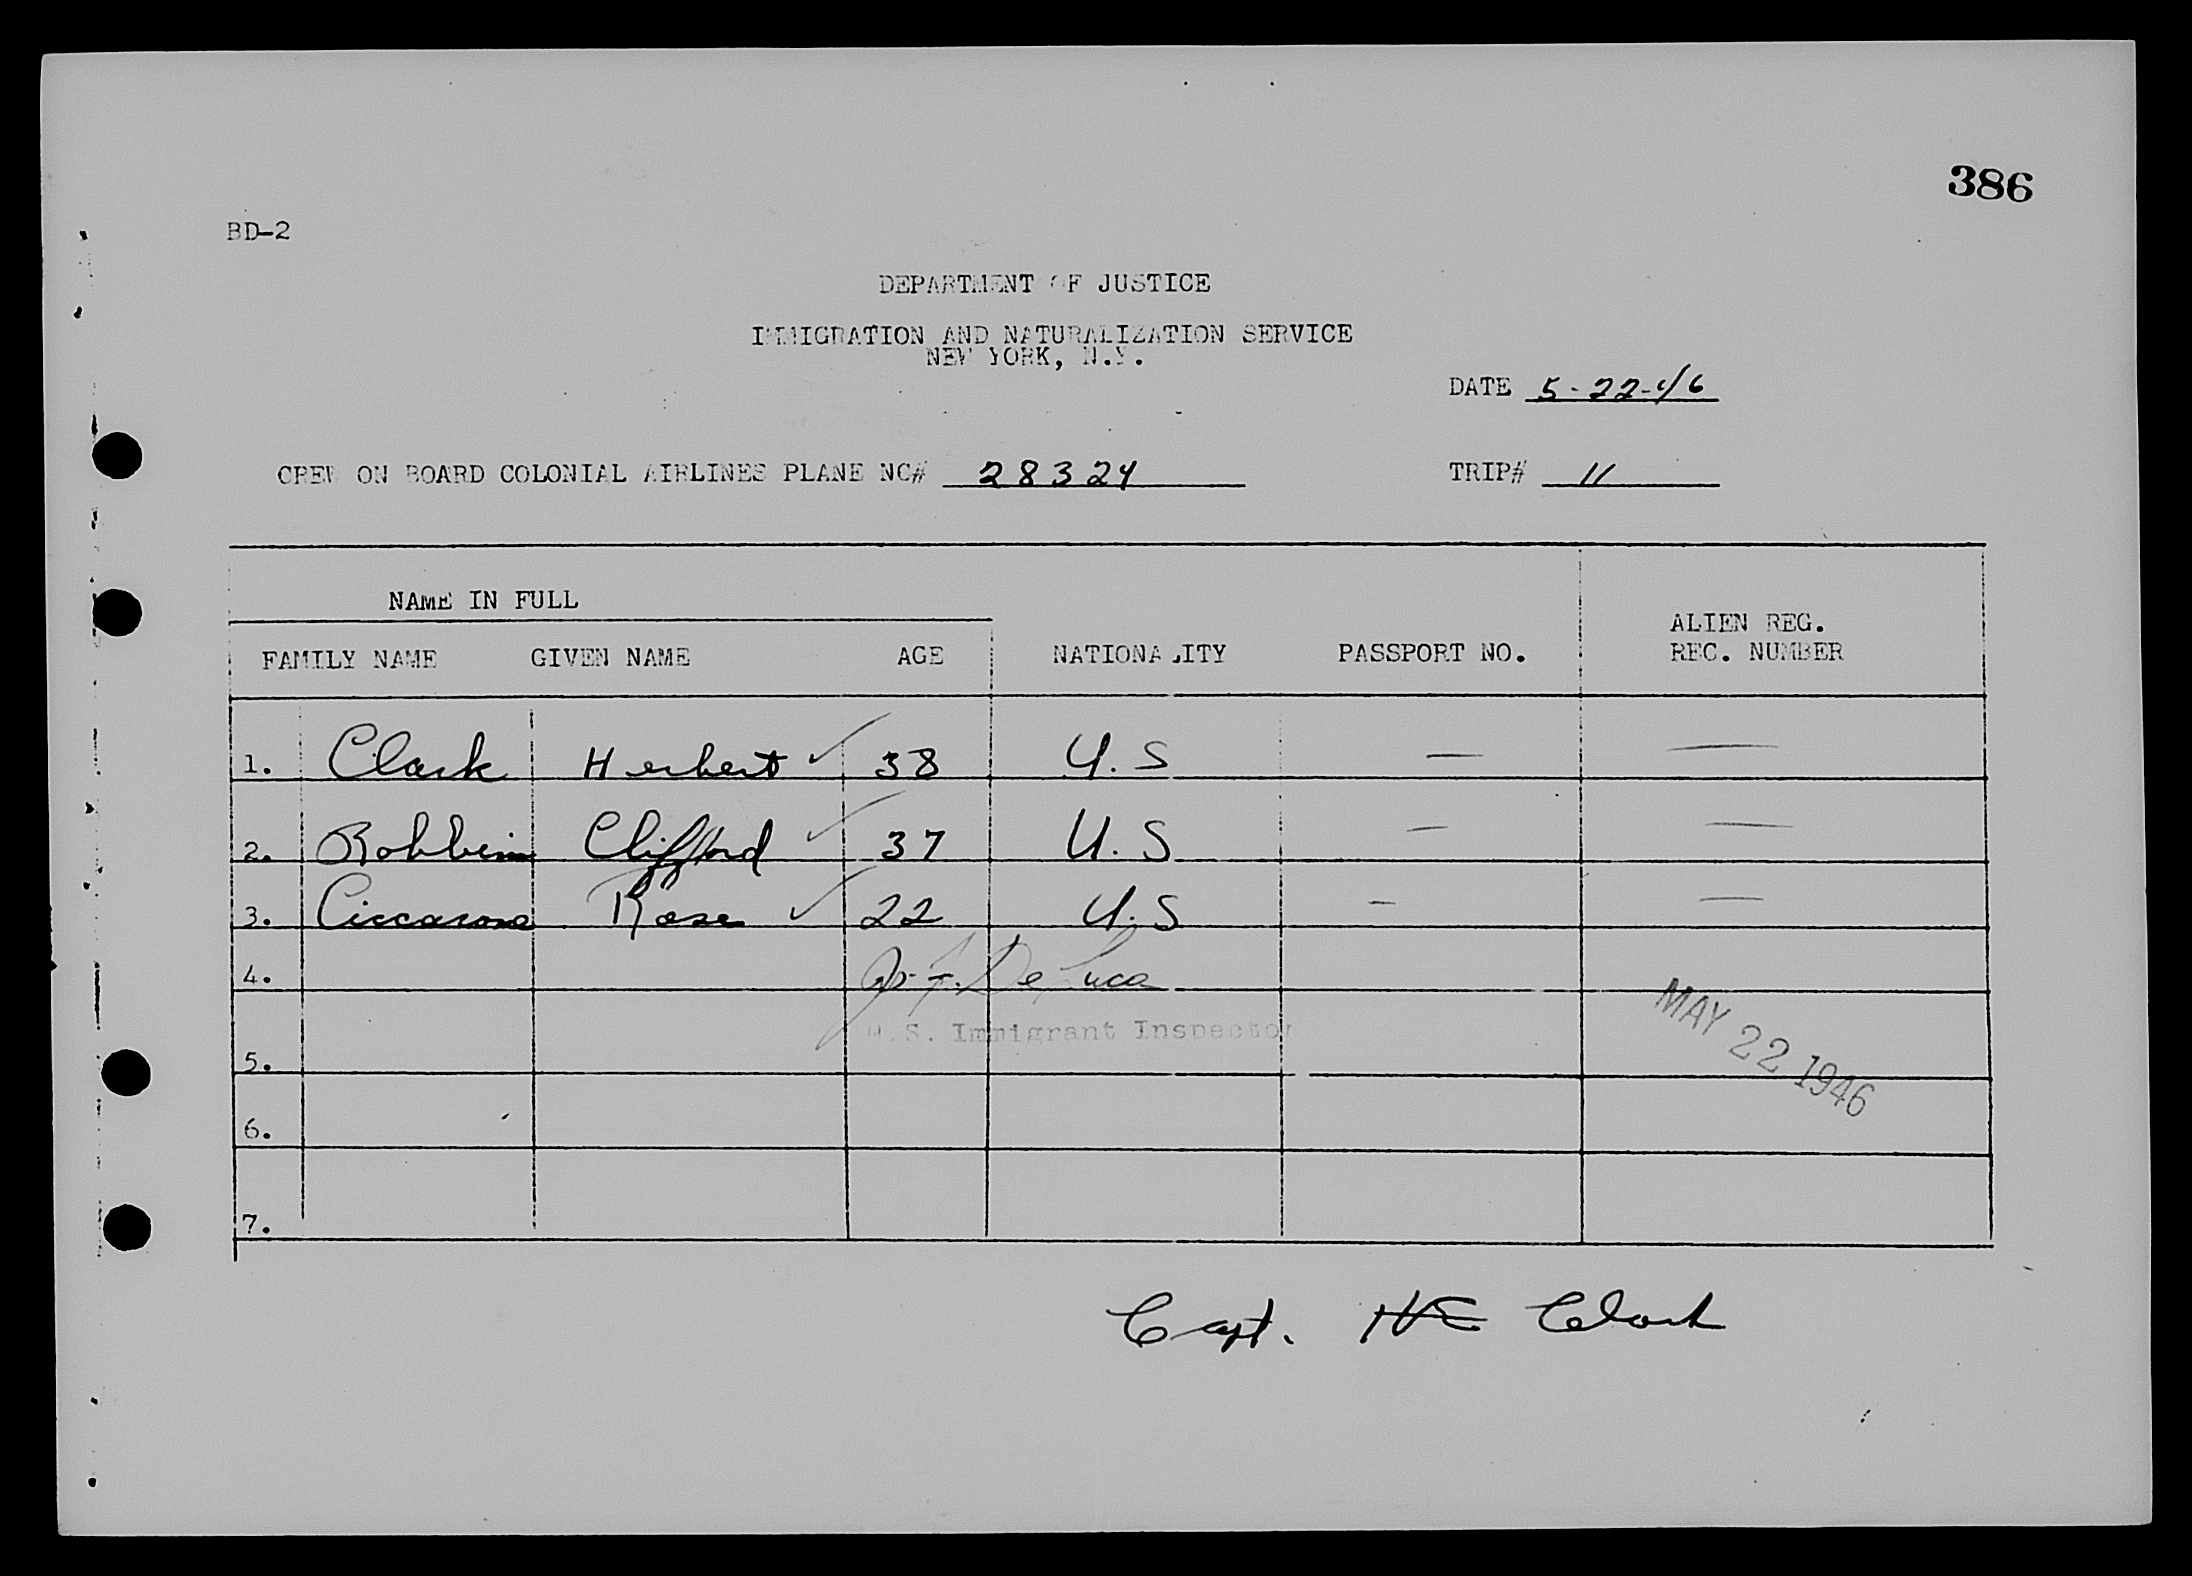 386
BD-2
DEPARTMENT OF JUSTICE
IMMIGRATION AND NATURALIZATION SERVICE
NEW YORK, N.Y.
DATE 5-22-46
CREW ON BOARD COLONIAL AIRLINES PLANE NC# 28324 TRIP# 11
NAME IN FULL
FAMILY NAME GIVEN NAME AGE NATIONALITY PASSPORT NO. ALIEN REG. REC. NUMBER
1. Clark Herbert ✓ 38 U.S — —
2. Robbins Clifford ✓ 37 U.S — —
3. Ciccarone Rose ✓ 22 U.S — —
4. De Luca
U.S. Immigrant Inspector
MAY 22 1946
5.
6.
7.
Capt. HE Clark